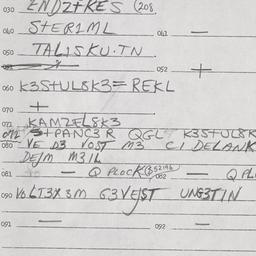 030 ENDZTKES (208
040 STER1ML 041 —
050 TALISKU.TN
052 +
060 K3STUL8K3= REKL
070 +
071 KAMZELSK3
072 STPANC3R QGL K3STUL8K
080 VE D3 VOST M3 C1 DELANK
DEJM M31L
081 — Q PLOCK 082 — Q PL
090 VO.LT3X SM G3VEJST UNG3TIN
091 — 092 —